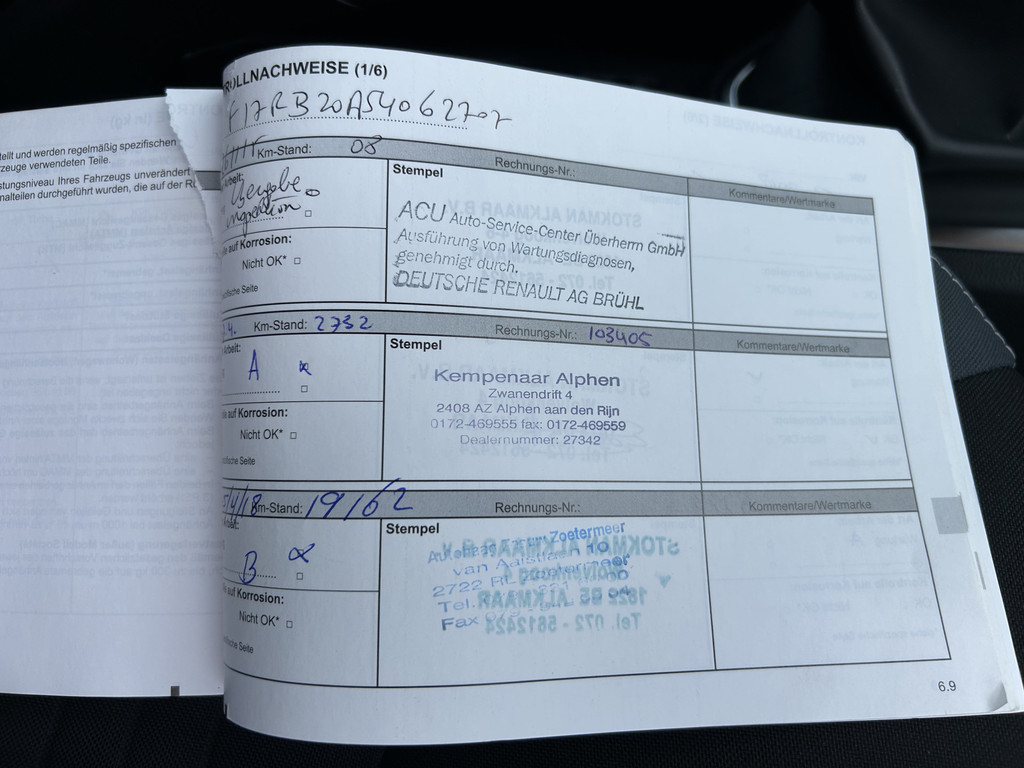 tellt und werden regelmäßig spezifischen
zeuge verwendeten Teile.
stungsniveau Ihres Fahrzeugs unverändert
nalteilen durchgeführt wurden, die auf der R
ROLLNACHWEISE (1/6)
F17RB20A54062707
Km-Stand: 08 Rechnungs-Nr.:
Stempel
Kommentare/Wertmarke
ACU Auto-Service-Center Überherrn GmbH
Ausführung von Wartungsdiagnosen,
genehmigt durch.
DEUTSCHE RENAULT AG BRÜHL
auf Korrosion:
Nicht OK* □
Seite
Km-Stand: 2732 Rechnungs-Nr.: 103405
Stempel
Kommentare/Wertmarke
A
Kempenaar Alphen
Zwanendrift 4
2408 AZ Alphen aan den Rijn
0172-469555 fax: 0172-469559
Dealernummer: 27342
auf Korrosion:
Nicht OK* □
Seite
/4/18 Km-Stand: 19162 Rechnungs-Nr.:
Stempel
Kommentare/Wertmarke
B
Zoetermeer
van 10
2722
Tel.
Fax
auf Korrosion:
Nicht OK* □
Seite
6.9